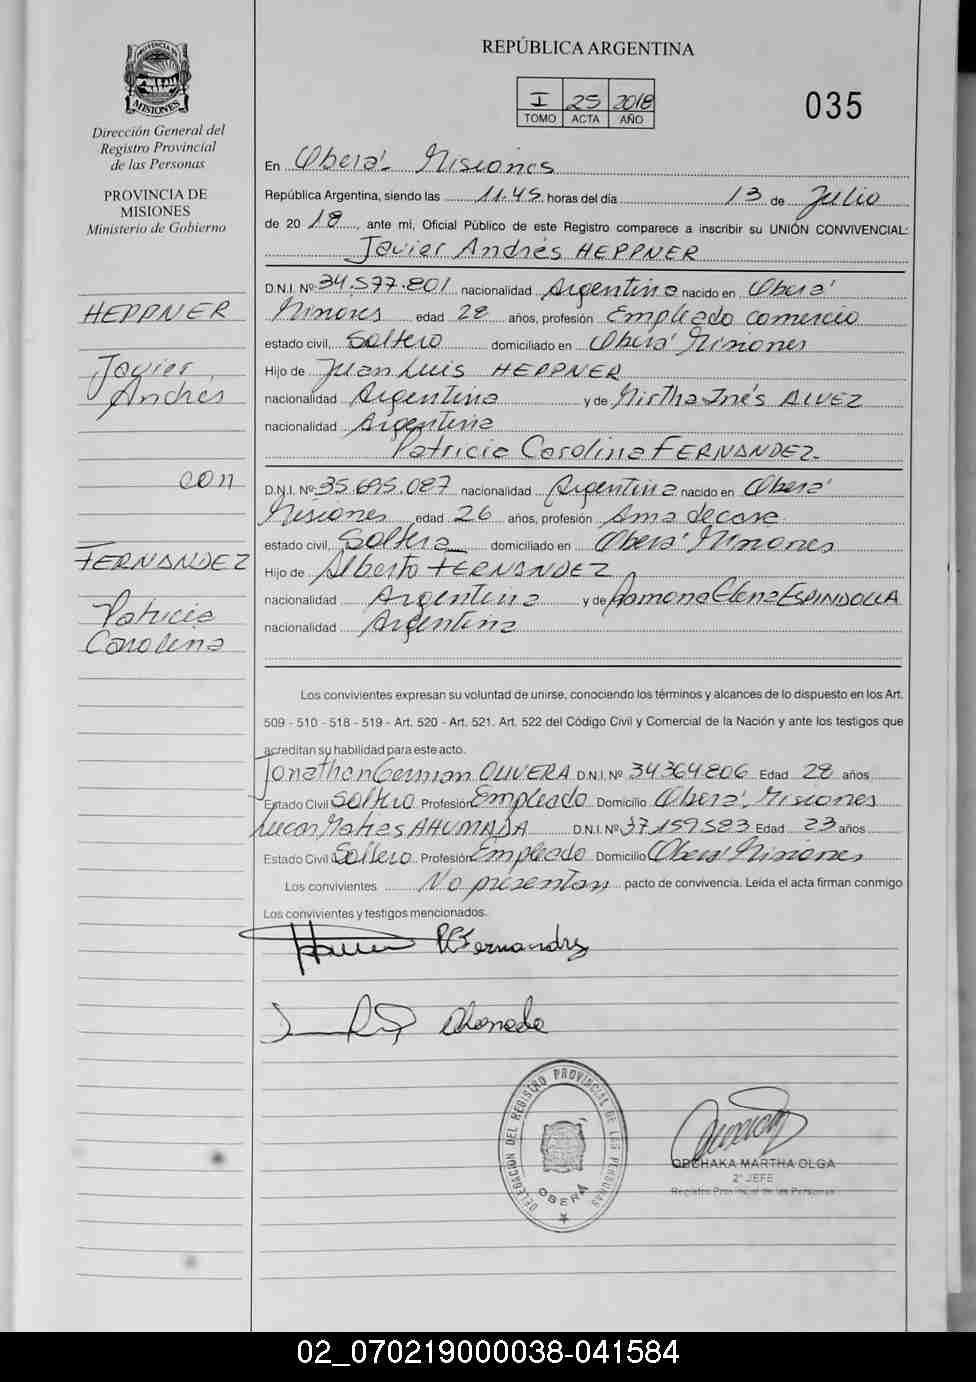 REPÚBLICA ARGENTINA
I 25 2018
TOMO ACTA AÑO
035
PROVINCIA DE
MISIONES
Dirección General del
Registro Provincial
de las Personas
PROVINCIA DE
MISIONES
Ministerio de Gobierno
HEPPNER
Javier
Andrés
con
FERNANDEZ
Patricia
Carolina
En Oberá - Misiones
República Argentina, siendo las 11.45 horas del día 13 de Julio
de 20 18, ante mi, Oficial Público de este Registro comparece a inscribir su UNIÓN CONVIVENCIAL:
Javier Andrés HEPPNER
D.N.I. Nº 34.577.801 nacionalidad Argentina nacido en Oberá
Misiones edad 28 años, profesión Empleado comercio
estado civil, Soltero domiciliado en Oberá Misiones
Hijo de Juan Luis HEPPNER
nacionalidad Argentina y de Mirtha Inés ALVEZ
nacionalidad Argentina
Patricia Carolina FERNANDEZ.
D.N.I. Nº 35.695.087 nacionalidad Argentina nacido en Oberá
Misiones edad 26 años, profesión Ama de casa
estado civil, Soltera domiciliado en Oberá Misiones
Hijo de Alberto FERNANDEZ
nacionalidad Argentina y de Ramona Elena ESPINDOLLA
nacionalidad Argentina
Los convivientes expresan su voluntad de unirse, conociendo los términos y alcances de lo dispuesto en los Art.
509 - 510 - 518 - 519 - Art. 520 - Art. 521. Art. 522 del Código Civil y Comercial de la Nación y ante los testigos que
acreditan su habilidad para este acto.
Jonathan German OLIVERA D.N.I. Nº 34364806 Edad 28 años
Estado Civil Soltero Profesión Empleado Domicilio Oberá, Misiones
Lucas Matias AHUMADA D.N.I. Nº 37159583 Edad 23 años
Estado Civil Soltero Profesión Empleado Domicilio Oberá Misiones
Los convivientes No presentan pacto de convivencia. Leída el acta firman conmigo
Los convivientes y testigos mencionados.
PCFernandez
DELEGACION DEL REGISTRO PROVINCIAL DE LAS PERSONAS
OBERÁ
MARTHA OLGA
2º JEFE
Registro Provincial de las Personas
02_070219000038-041584